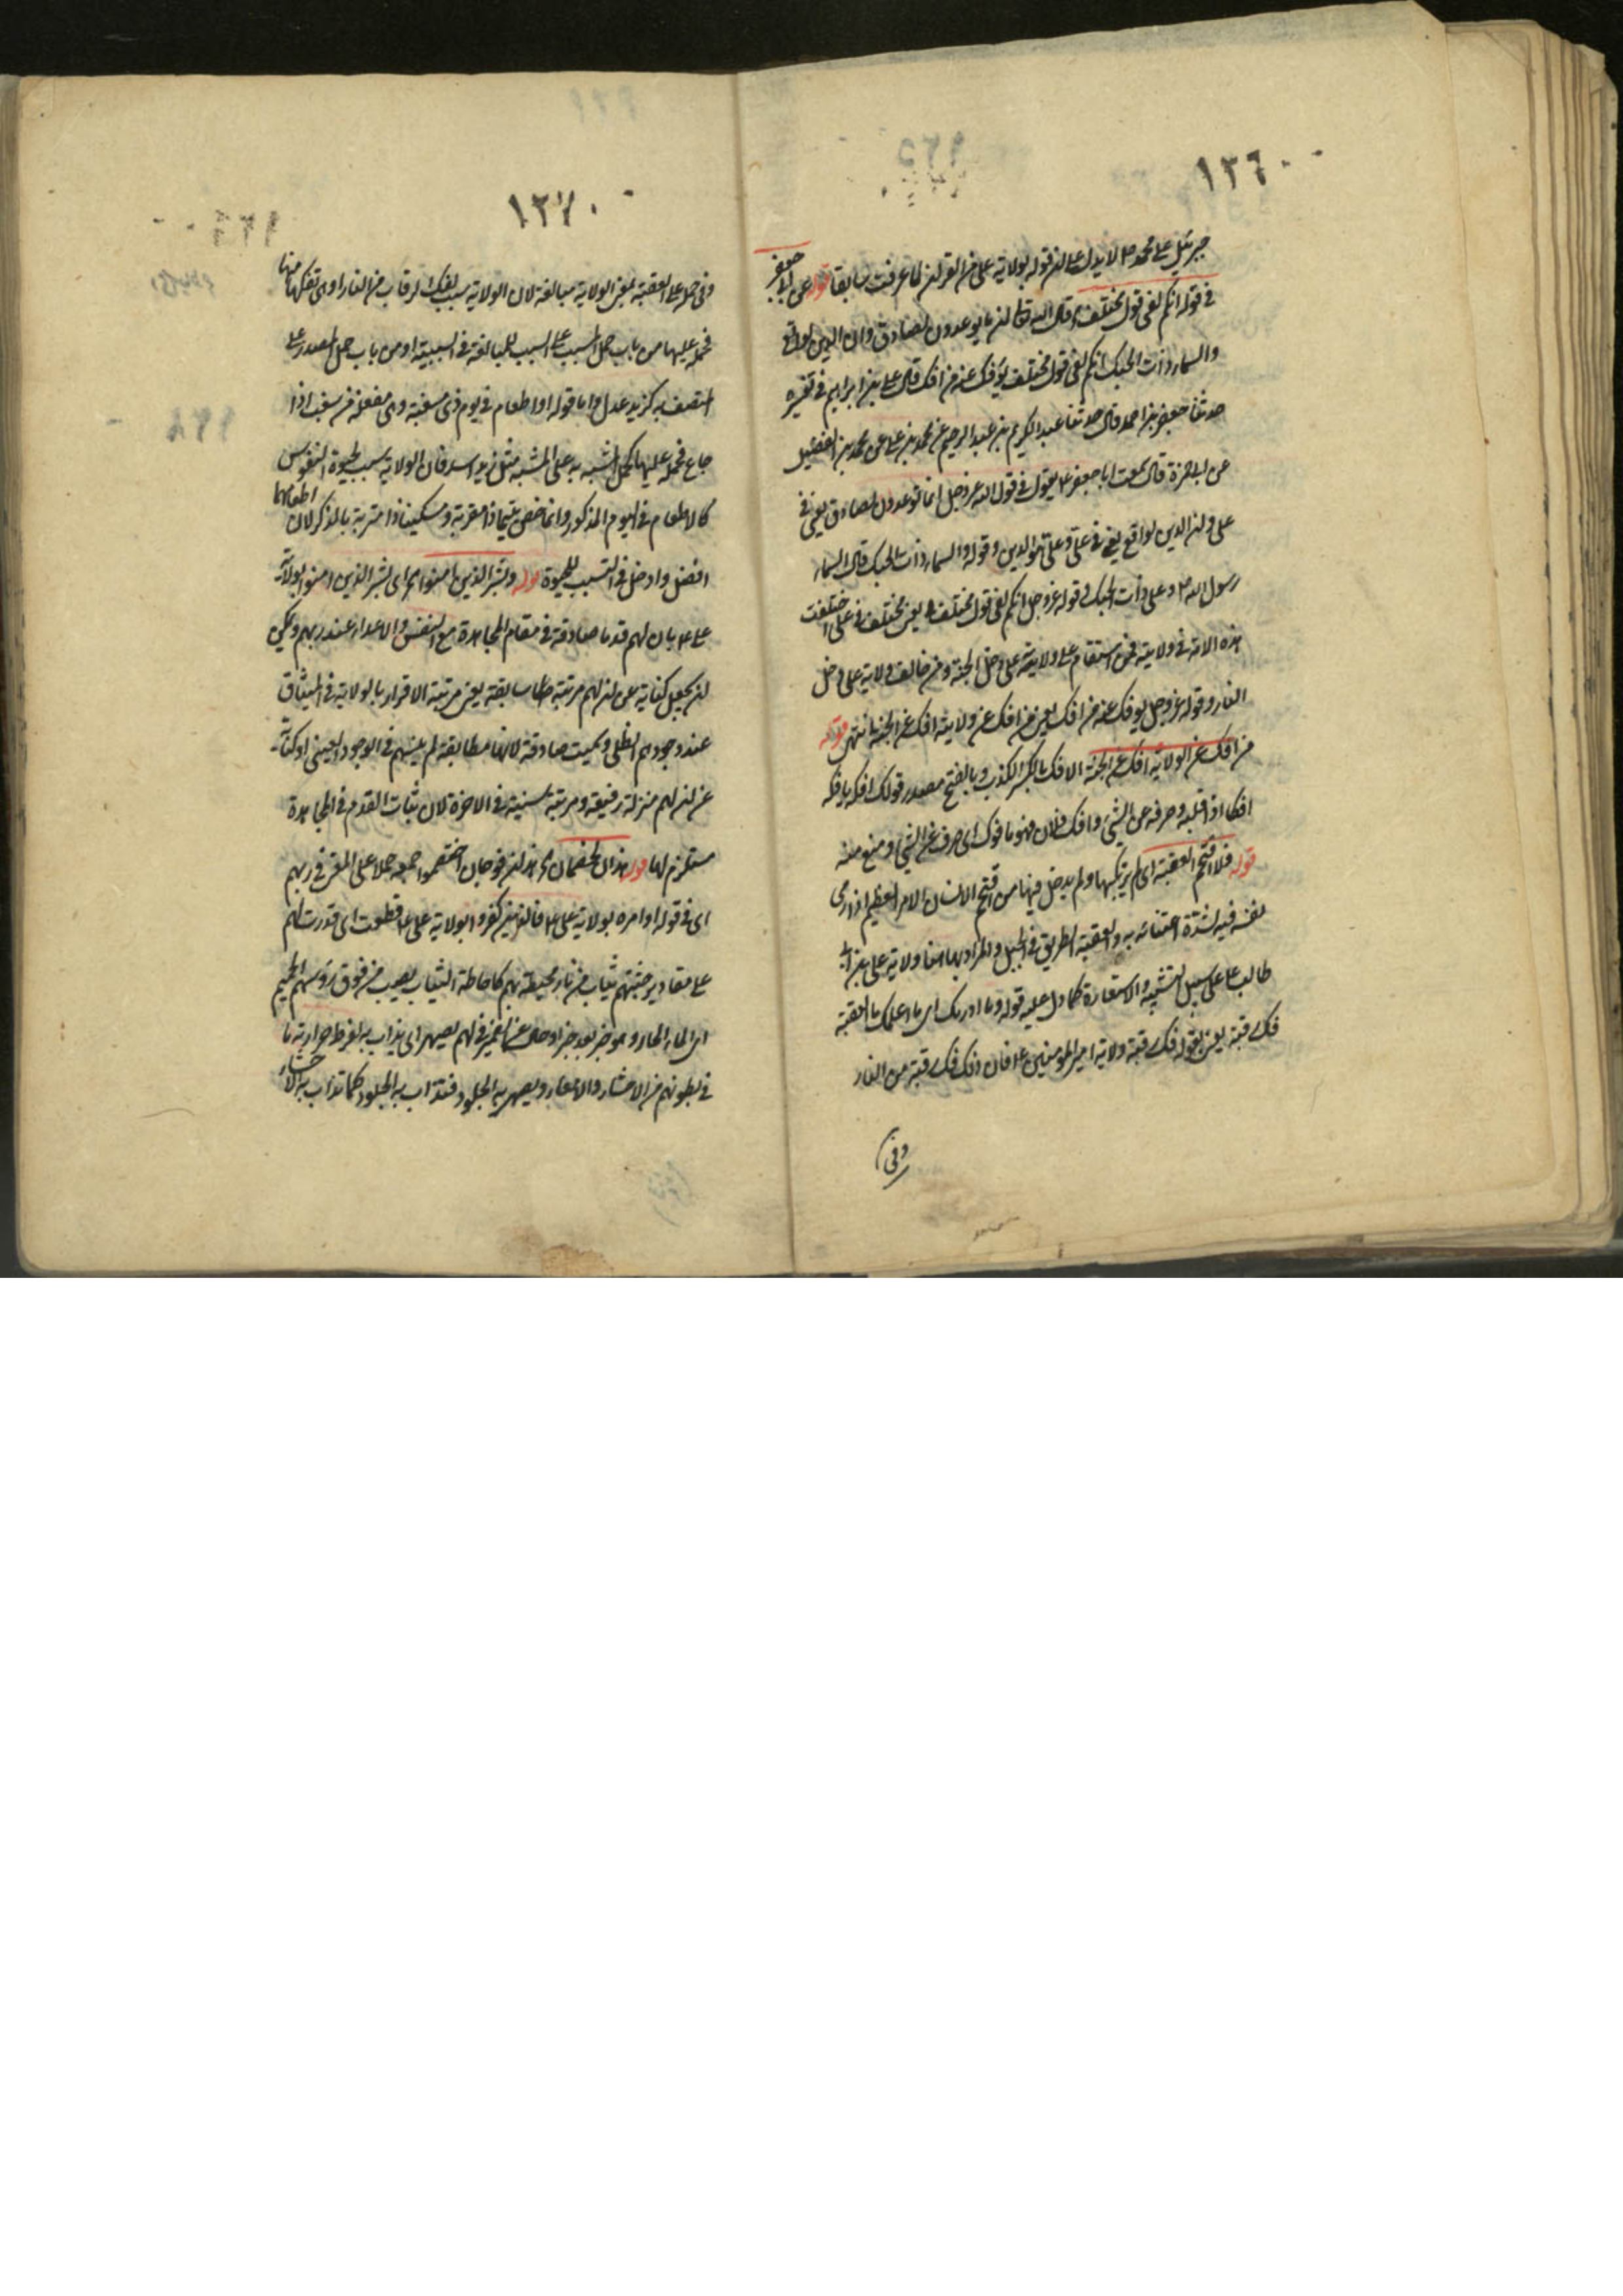 ١٣٦٠
جبرئيل على محمد ص لا يدل على ان قوله بولاية علي من القران لما عرفت سابقا قوله عن ابي جعفر
في قوله انكم لفي قول مختلف قال الله تعالى ان ما توعدون لصادق وان الدين لواقع
والسماء ذات الحبك انكم لفي قول مختلف يؤفك عنه من افك قال علي بن ابراهيم في تفسيره
حدثنا جعفر بن احمد قال حدثنا عبد الكريم بن عبد الرحيم عن محمد بن علي عن محمد بن الفضيل
عن ابي حمزة قال سمعت ابا جعفر ع يقول في قول الله عز وجل انما توعدون لصادق يعني في
علي وان الدين لواقع يعني في علي وعلي هو الدين وقوله والسماء ذات الحبك قال السماء
رسول الله ص وعلي ذات الحبك في قوله عز وجل انكم لفي قول مختلف يعني مختلف في علي اختلفت
هذه الامة في ولايته فمن استقام على ولاية علي دخل الجنة ومن خالف ولاية علي دخل
النار وقوله عز وجل يؤفك عنه من افك يعني من افك عن ولايته افك عن الجنة انتهى قوله
من افك عن الولاية افك عن الجنة الافك بالكسر الكذب وبالفتح مصدر قولك افكه يافكه
افكا اذا قلبه وصرفه عن الشيء وافك فلان فهو مافوك اي صرف عن الشيء ومنع منه
قوله فلا اقتحم العقبة اي لم يرتكبها ولم يدخل فيها من اقتحم الانسان الامر العظيم اذا رمى
نفسه فيه لشدة اعتنائه به والعقبة الطريق في الجبل والمراد بها هنا ولاية علي بن ابي
طالب ع على سبيل التشبيه والاستعارة كما دل عليه قوله وما ادريك اي ما اعلمك ما العقبة
فك رقبة يعني بقوله فك رقبة ولاية امير المؤمنين ع فان ذلك فك رقبة من النار
وفي
١٣٧٠
وفي حمله على العقبة بمعنى الولاية مبالغة لان الولاية سبب لفك الرقاب من النار اوهى تفكها منها
فحمله عليها من باب حمل المسبب على السبب للمبالغة في السببية او من باب حمل المصدر على
المتصف به كزيد عدل واما قوله او اطعام في يوم ذي مسغبة وهي مفعلة من سغب اذا
جاع فحمله عليها كحمل المشبه به على المشبه مثل زيد اسد فان الولاية سبب لحيوة النفوس
كالاطعام في اليوم المذكور وانما خص يتيما ذا مقربة ومسكينا ذا متربة بالذكر لان اطعامهما
افضل وادخل في التسبب للحيوة قوله وبشر الذين امنوا اي بشر الذين امنوا بولاية
علي ع بان لهم قدما صادقة في مقام المجاهدة مع النفس والاعداء عند ربهم ويمكن
ان يجعل كناية عن ان لهم مرتبة سابقة يعني مرتبة الاقرار بالولاية في الميثاق
عند وجودهم الظلي وسميت صادقة لانها مطابقة لمرتبتهم في الوجود العيني او كناية
عن ان لهم منزلة رفيعة ومرتبة سنية في الاخرة لان ثبات القدم في المجاهدة
مستلزم لها قوله هذان خصمان اي هذان فوجان اختصموا جمعه حملا على المعنى في ربهم
اي في قوله او امره بولاية علي ع فالذين كفروا بولاية علي ع قطعت اي قدرت لهم
على مقادير جثتهم ثياب من نار محيطة بهم كاحاطة الثياب يصب من فوق رؤسهم الحميم
اي الماء الحار وهو خبر بعد خبر او حال عن الضمير في لهم يصهر اي يذاب به لفرط حرارته ما
في بطونهم من الاحشاء والامعاء ويصهر به الجلود فتذاب به الجلود كما تذاب به الاحشاء